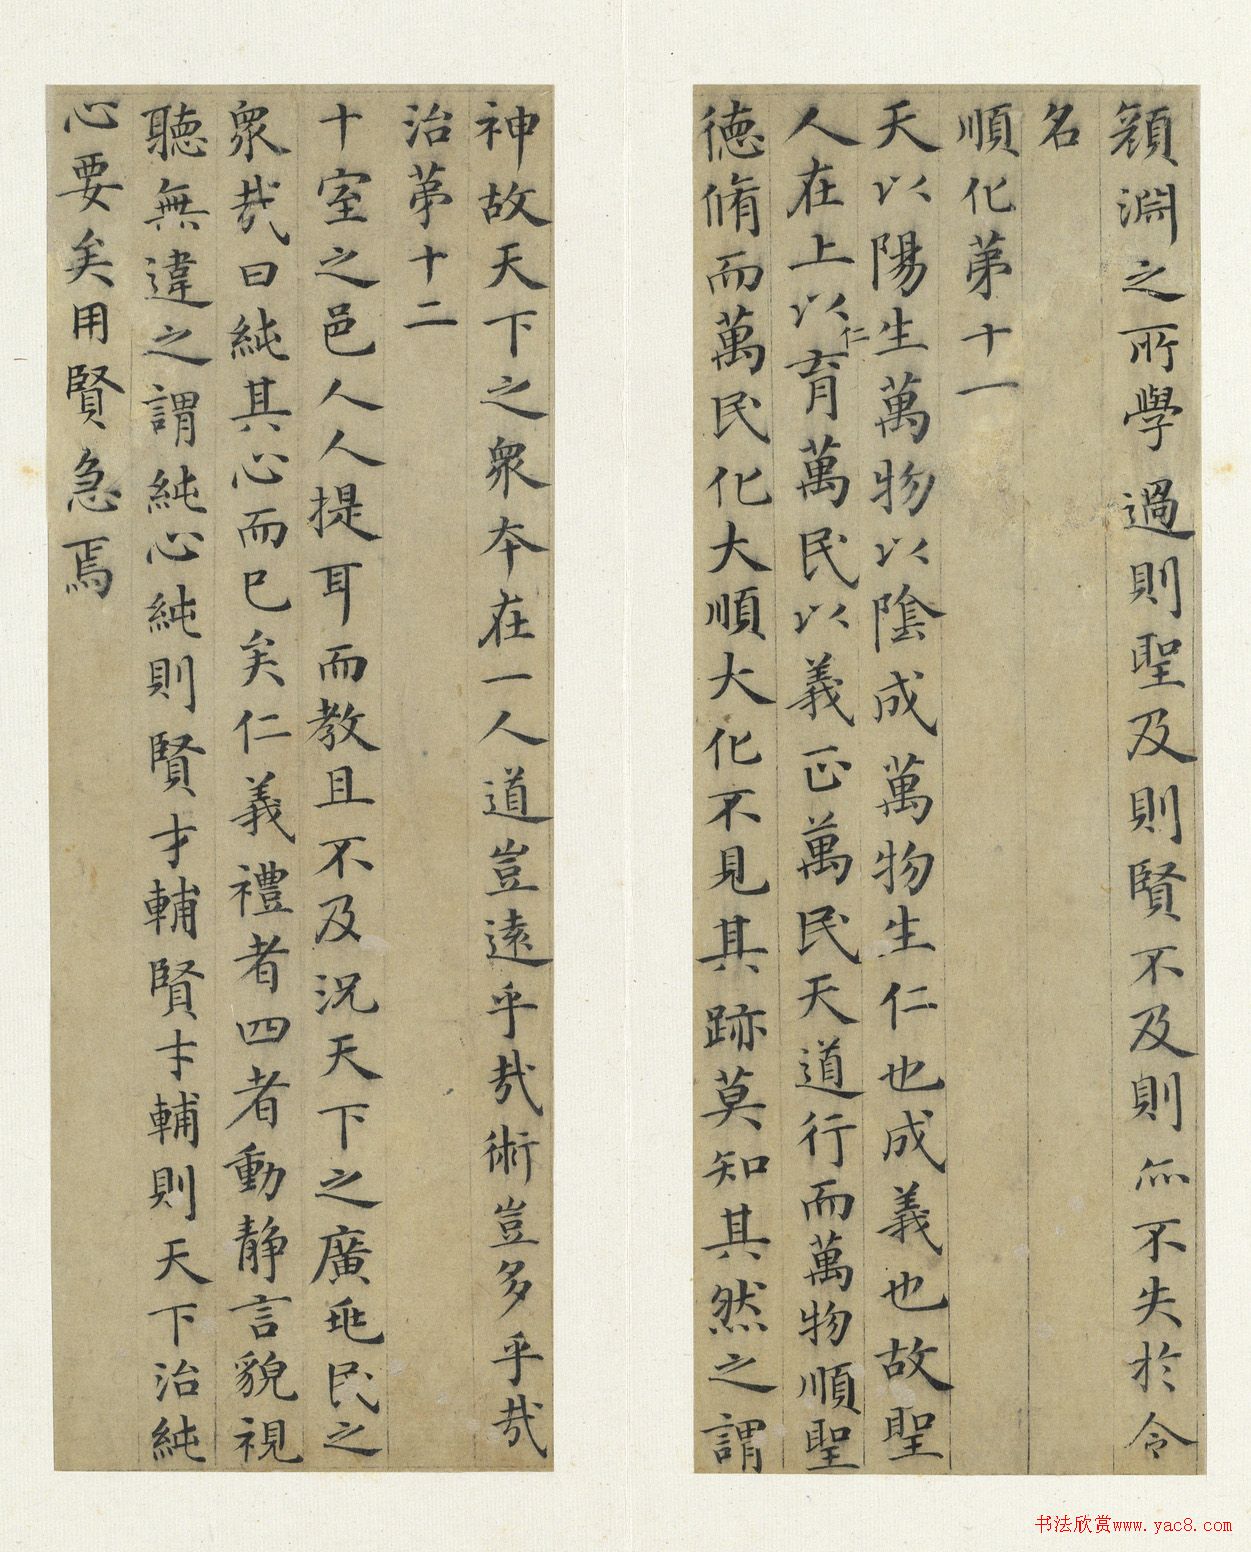 顏淵之所學過則聖及則賢不及則亦不失於令
名
順化第十一
天以陽生萬物以陰成萬物生仁也成義也故聖
人在上以仁育萬民以義正萬民天道行而萬物順聖
德脩而萬民化大順大化不見其跡莫知其然之謂
神故天下之衆本在一人道豈遠乎哉術豈多乎哉
治第十二
十室之邑人人提耳而教且不及況天下之廣兆民之
衆哉曰純其心而已矣仁義禮者四者動靜言貌視
聽無違之謂純心純則賢才輔賢才輔則天下治純
心要矣用賢急焉
书法欣赏www.yac8.com